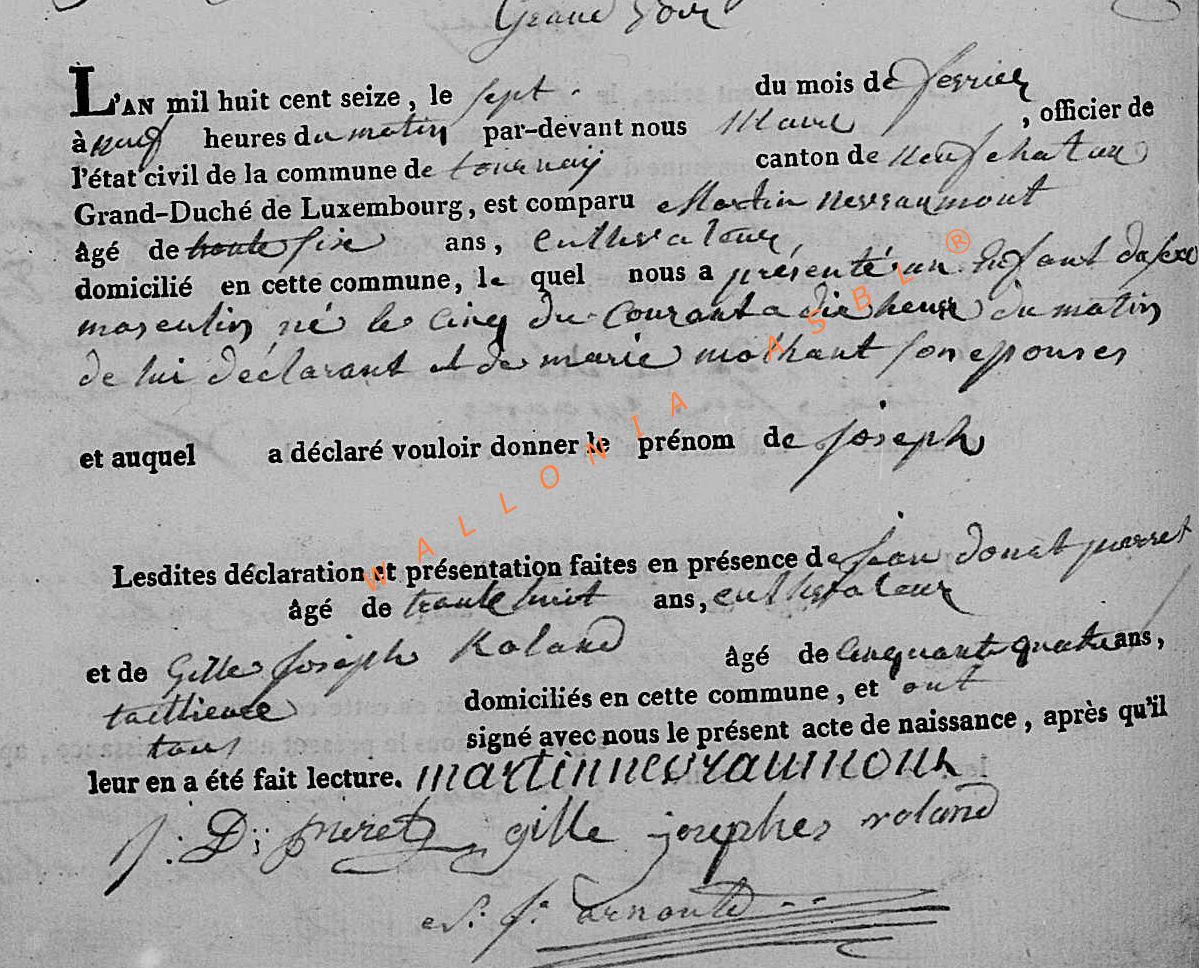 Grand
L'AN mil huit cent seize, le sept du mois de fevrier
à neuf heures du matin par-devant nous Maire, officier de
l'état civil de la commune de tournay canton de neufchateau
Grand-Duché de Luxembourg, est comparu Martin nevraumont
âgé de trente six ans, cultivateur,
domicilié en cette commune, le quel nous a présenté un Enfant du sexe
masculin né le cinq du Courant a dix heure du matin
de lui déclarant et de marie mothant son epouses
et auquel a déclaré vouloir donner le prénom de joseph
Lesdites déclaration et présentation faites en présence de jean donat pierret
âgé de trente huit ans, cultivateur
et de Gilles Joseph Roland âgé de Cinquante quatre ans,
taillieure domiciliés en cette commune, et ont
tous signé avec nous le présent acte de naissance, après qu'il
leur en a été fait lecture. martin nevraumont
J: D: pieret gille josephes roland
arnould
WALLONIA ASBL ®